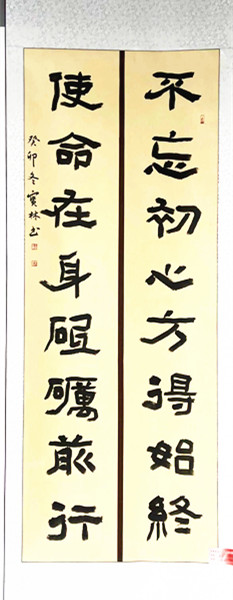 不忘初心方得始終
使命在身砥礪前行
癸卯冬寶林书